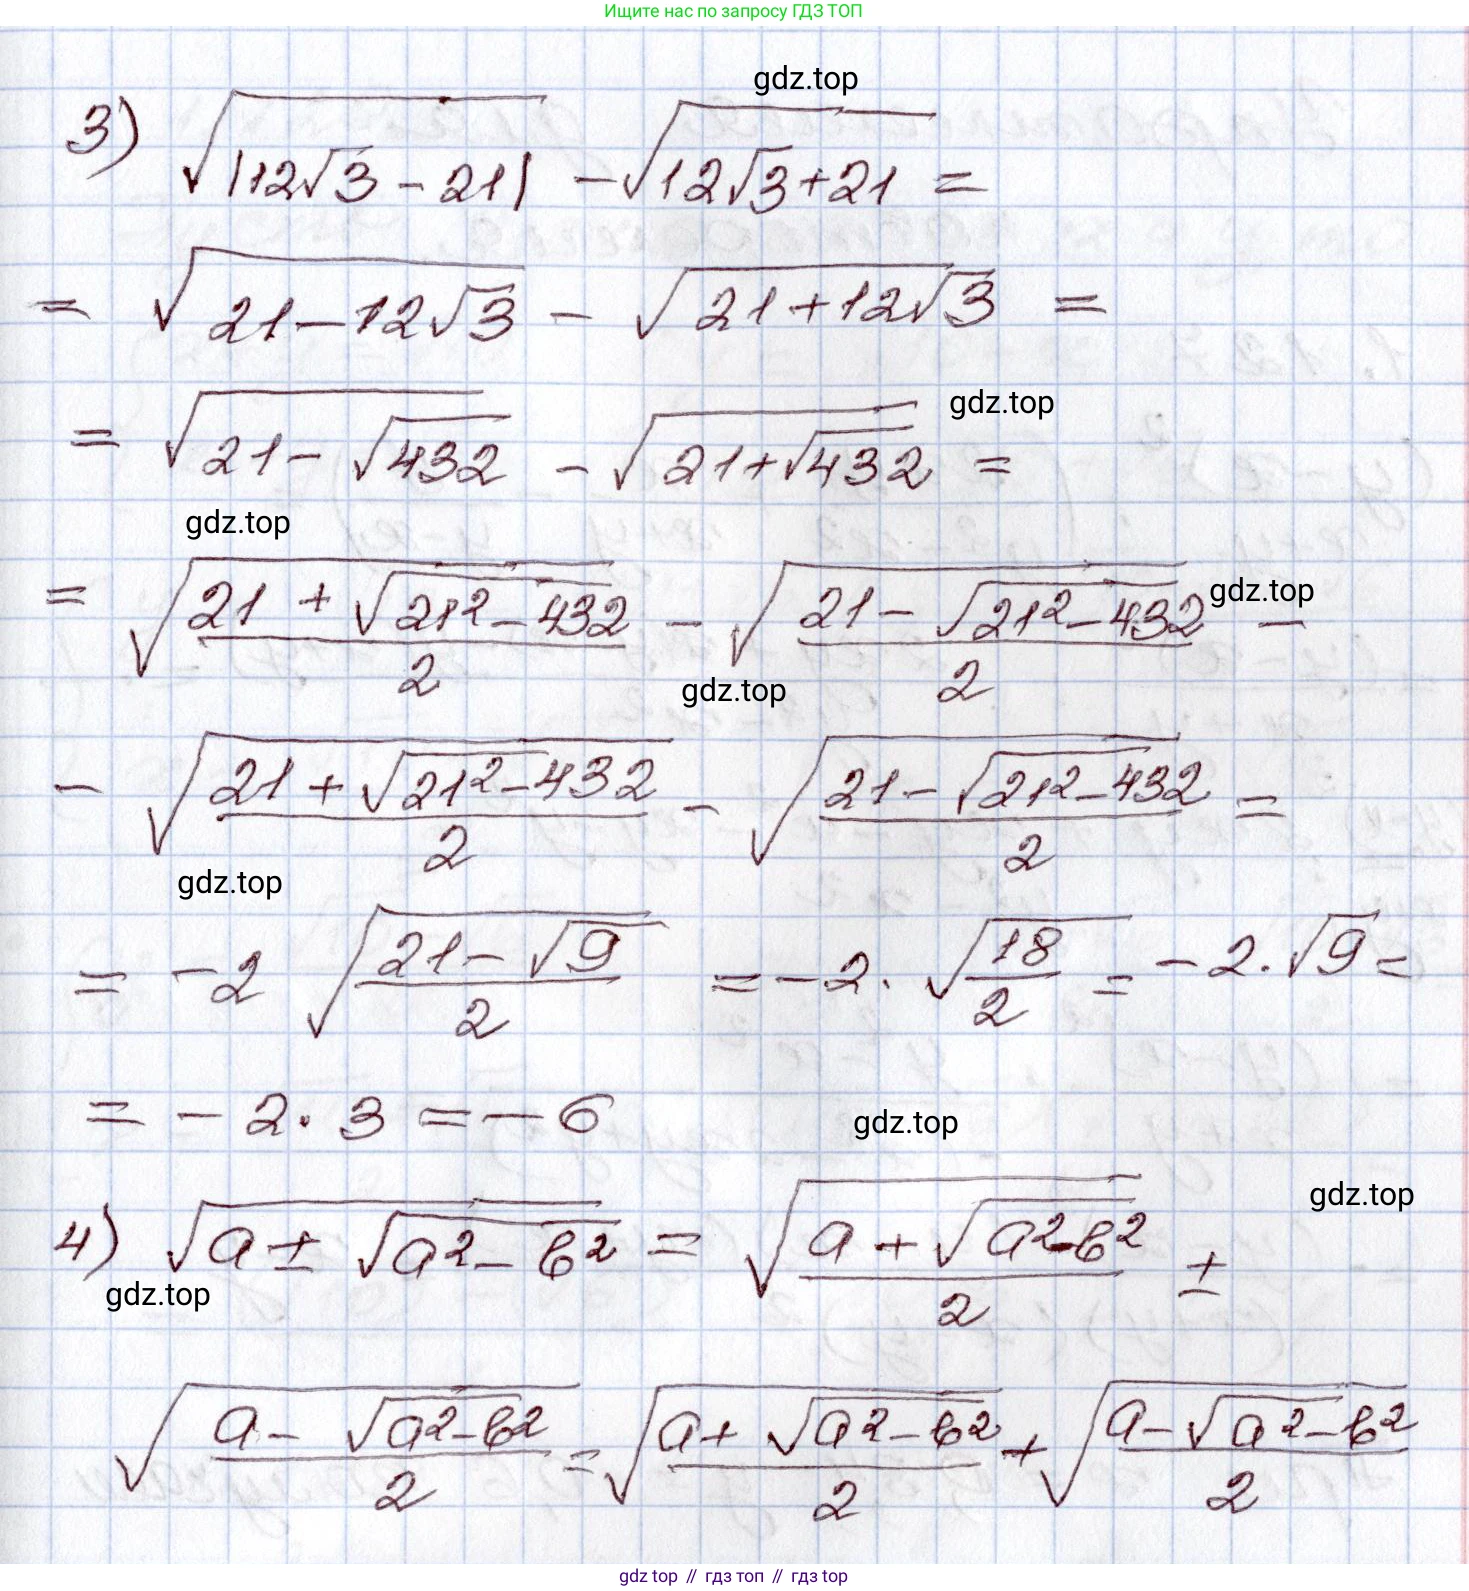 Ищите нас по запросу ГДЗ ТОП
gdz.top
3) √(|12√3 - 21|) - √(12√3 + 21) =
= √(21 - 12√3) - √(21 + 12√3) =
gdz.top
= √(21 - √432) - √(21 + √432) =
gdz.top
= √((21 + √(21² - 432))/2) - √((21 - √(21² - 432))/2) -
gdz.top
gdz.top
- √((21 + √(21² - 432))/2) - √((21 - √(21² - 432))/2) =
gdz.top
= -2 √((21 - √9)/2) = -2 · √(18/2) = -2 · √9 =
= -2 · 3 = -6
gdz.top
gdz.top
4) √(a ± √(a² - b²)) = √((a + √(a² - b²))/2) ±
gdz.top
√((a - √(a² - b²))/2) = √((a + √(a² - b²))/2) + √((a - √(a² - b²))/2)
gdz top // гдз топ // гдз top